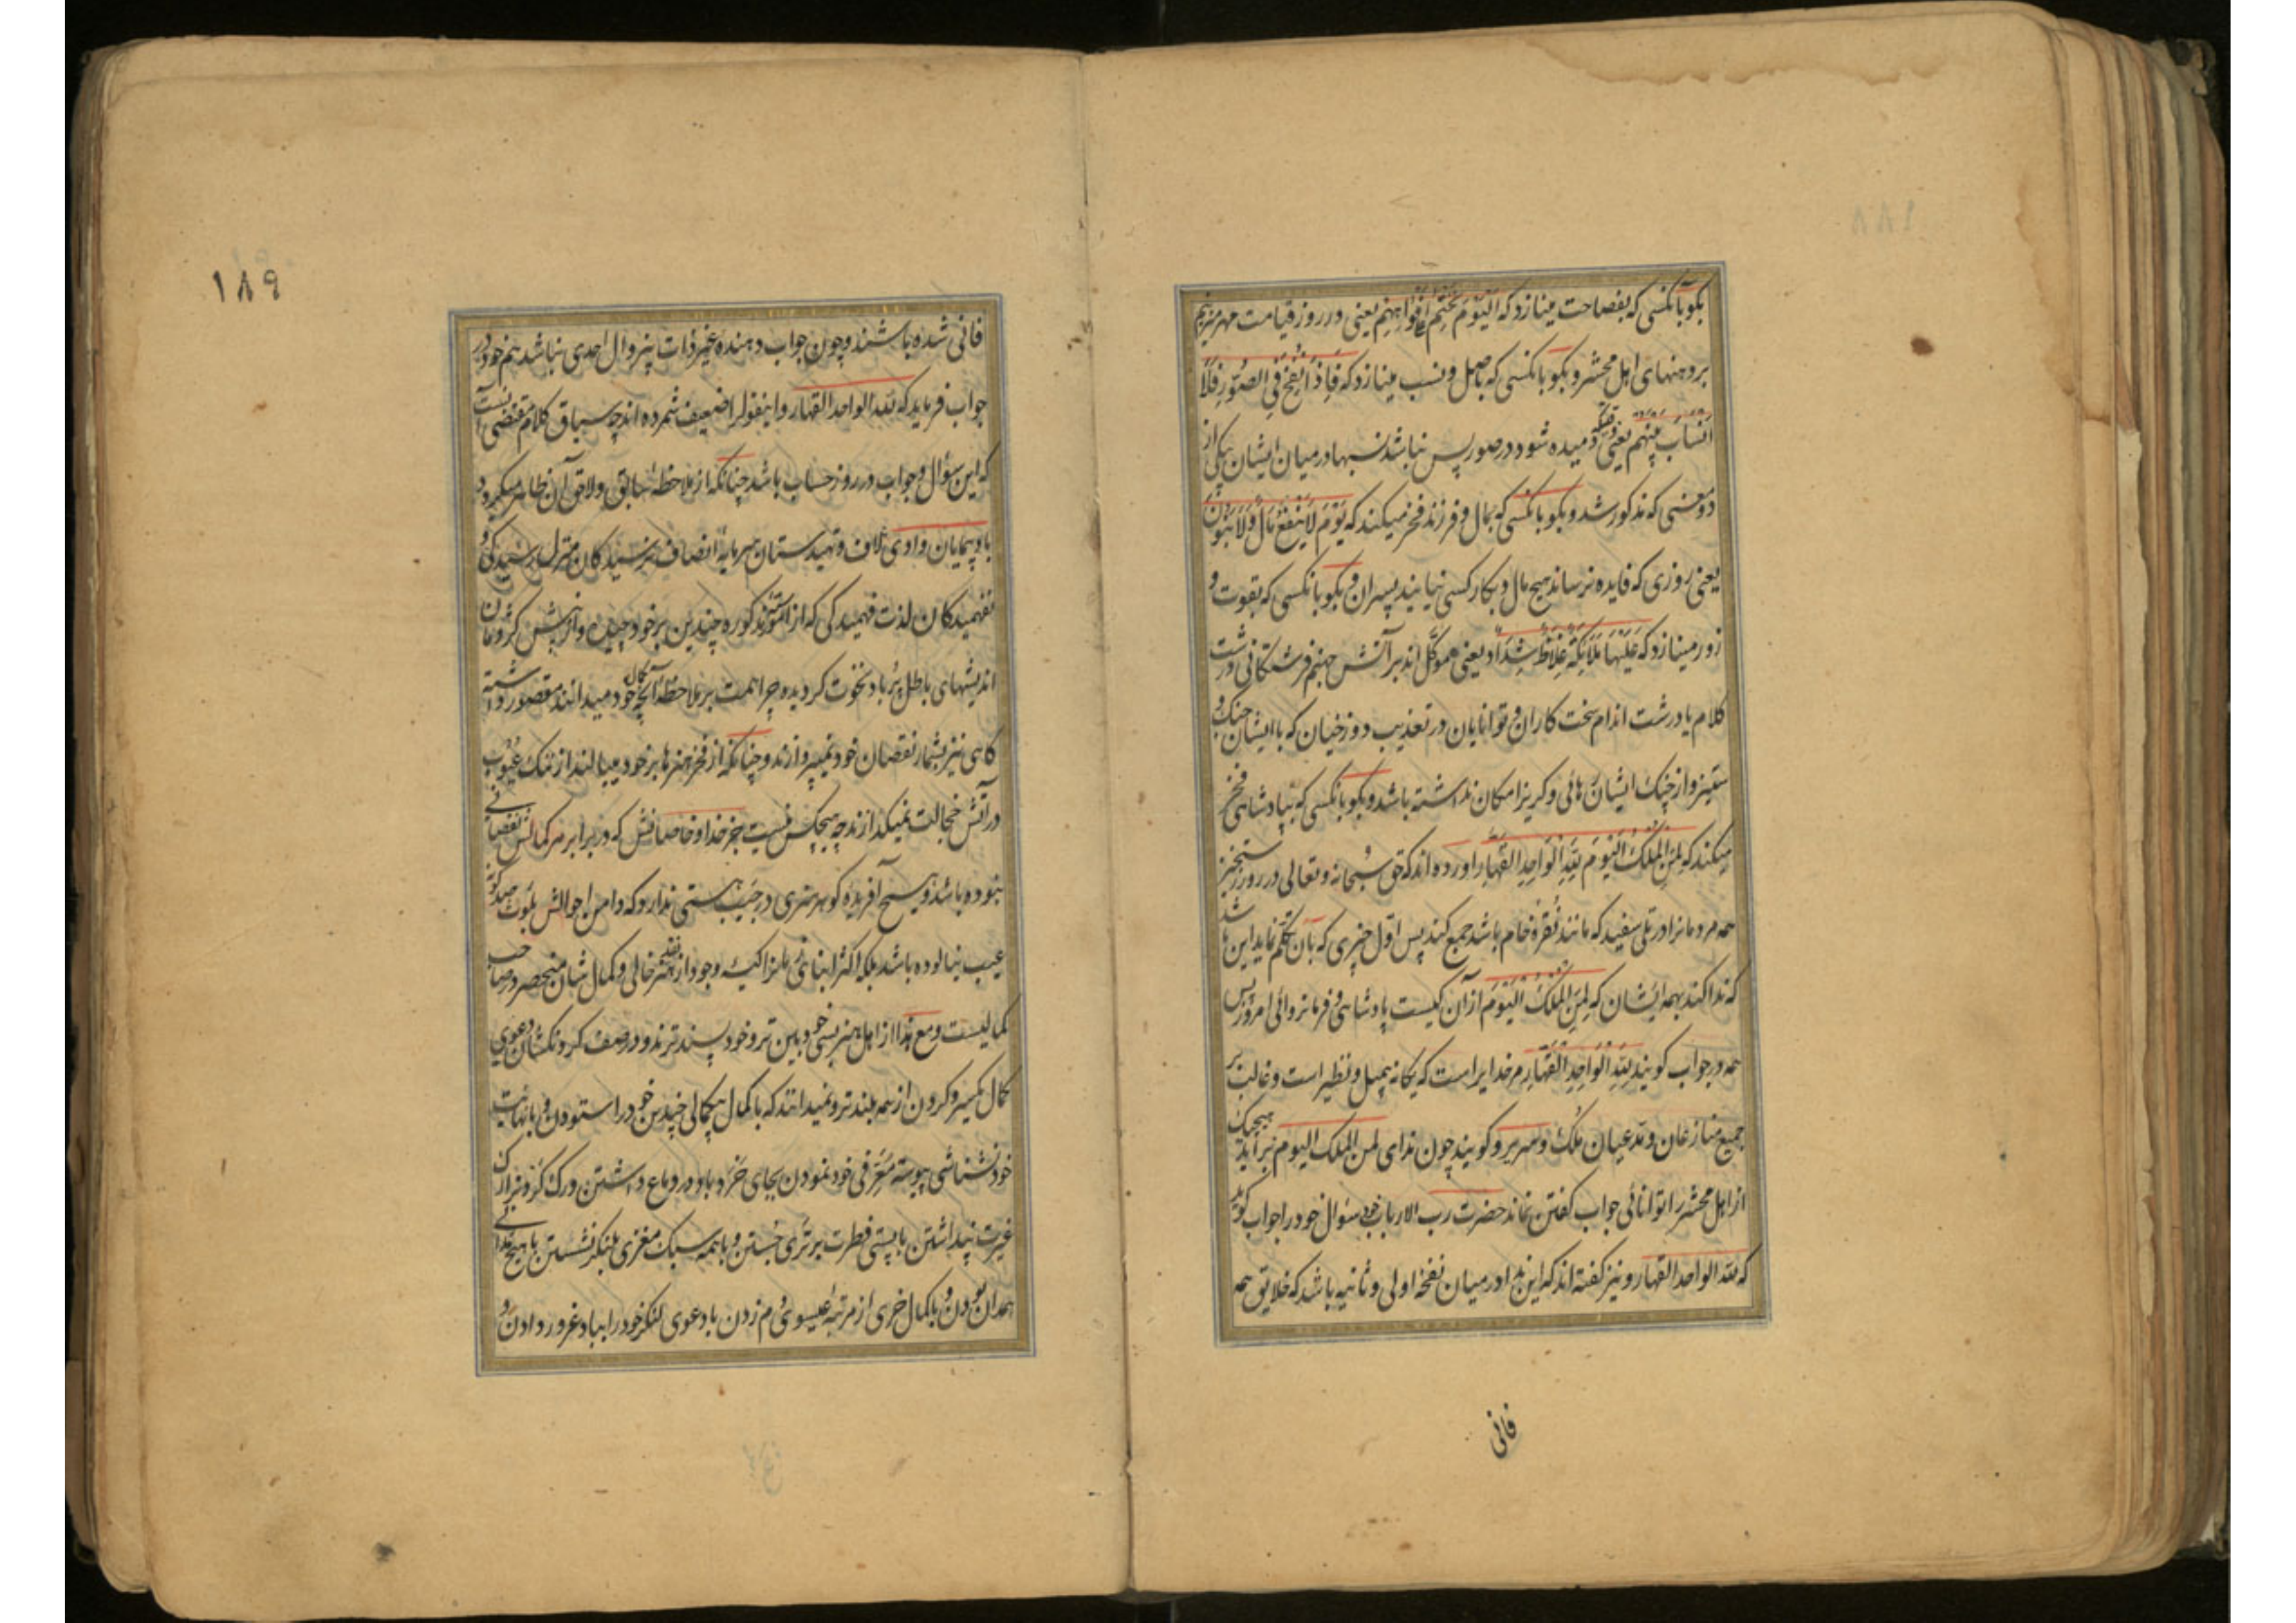 بکو بآنکسی که بفصاحت مینازد که اَلیَوْمَ نَخْتِمُ عَلی اَفْوَاهِهِم یعنی در روز قیامت مهر میزنیم
بر دهنهای اهل محشر و بکو بآنکسی که باصل و نسب مینازد که فَاِذَا نُفِخَ فِی الصُّورِ فَلَا
اَنْسَابَ بَیْنَهُم یعنی وقتیکه دمیده شود در صور پس نباشد نسبها در میان ایشان بیکی از
دو معنی که مذکور شد و بکو بآنکسی که بمال و فرزند فخر میکند که یَوْمَ لَا یَنْفَعُ مَالٌ وَلَا بَنُونَ
یعنی روزی که فایده نرساند هیچ مال و بکار کسی نیایند پسران و بکو بآنکسی که بقوت و
زور مینازد که عَلَیْهَا مَلَائِکَةٌ غِلَاظٌ شِدَادٌ یعنی موکّل اند بر آتش جهنم فرشتکانی درشت
کلام یا درشت اندام سخت کاران و توانایان در تعذیب دوزخیان که با ایشان جنک و
ستیز و از چنک ایشان رهائی و کریز امکان نداشته باشد و بکو بآنکسی که بپادشاهی فخر
میکند که لِمَنِ الْمُلْکُ الْیَوْمَ لِلّهِ الْوَاحِدِ الْقَهَّار آورده اند که حق سُبحانه و تعالی در روز رستخیز
همه مردمانرا در تلی سفید که مانند نُقرهٔ خام باشد جمع کند پس اوّل چیزی که بآن تکلّم نماید این باشد
که ندا کند بهمه ایشان که لِمَنِ الْمُلْکُ الْیَوْمَ از آن کیست پادشاهی و فرمانروائی امروز پس
همه در جواب کویند لِلّهِ الْوَاحِدِ الْقَهَّارِ مر خدایراست که یکانه بیمثل و نظیر است و غالب بر
جمیع منازعان و مدعیان مُلک و سریر و کویند چون ندای لمن الملک الیوم برآید هیچیک
از اهل محشر را توانائی جواب کفتن نماند حضرت رب الارباب خود سؤال خود را جواب کوید
که لله الواحد القهار و نیز کفته اند که این ندا در میان نفخهٔ اولی و ثانیه باشد که خلایق همه
فانی
۱۸۹
فانی شده باشند و چون جواب دهنده غیر ذات بیزوال احدی نباشد هم خود در
جواب فرماید که لله الواحد القهار و اینقولرا ضعیف شمرده اند چه سیاق کلام مقتضی آنست
که این سؤال و جواب در روز حساب باشد چنانکه از ملاحظهٔ سابق و لاحق آن ظاهر میکردد
بادپیمایان وادی کلاف و تهیدستان سرمایهٔ انصاف نرسیدکان منزل رسیدکی و
نفهمیدکان لذت فهمیدکی که از امور مذکوره چندین بر خود چیده و از پس کردمان
اندیشهای باطل پُر باد نخوت کردیده چرا همت بر ملاحظهٔ آنچه کمال خود میدانند مقصور داشته
کاهی نیز بشمار نقصان خود نمیپردازند و چنانکه از فخر هنرها بر خود میبالند از ننک عُیُوب
در آتش خجالت نمیکدازند چه هیچکس نیست جز خدا و خاصانش که در برابر هر کمالش نقصانی
نبوده باشد و هیچ آفریده کوهر هنری در جَیب هستی ندارد که دامن احوالش بلوث صد کونه
عیب نیالوده باشد بلکه اکثر ابنای زمانرا کیسهٔ وجود از نقد هنر خالی و کمال شان منحصر در صاحب
کمالیست و مع هذا از اهل هنر بسی خودبین تر و خودپسندترند و در صف کردنکشان دعوی
کمال بیسر و کردن از همه بلندتر و نمیدانند که با کمال بیکمالی چندین خود را ستودن و با نهایت
خودنشناسی پیوسته مُعَرِّفی خود نمودن بجای خَرَد باد در دماغ داشتن و رک کردنرا رک
غیرت پنداشتن با پستی فطرت برتری جُستن و با همه سبک مغزی بلنکر نشستن با هیچ ندانی
همه دان بودن و با کمال خری از مرتبهٔ عیسوی دم زدن با دعوی لنکر خود را بباد غرور دادن و